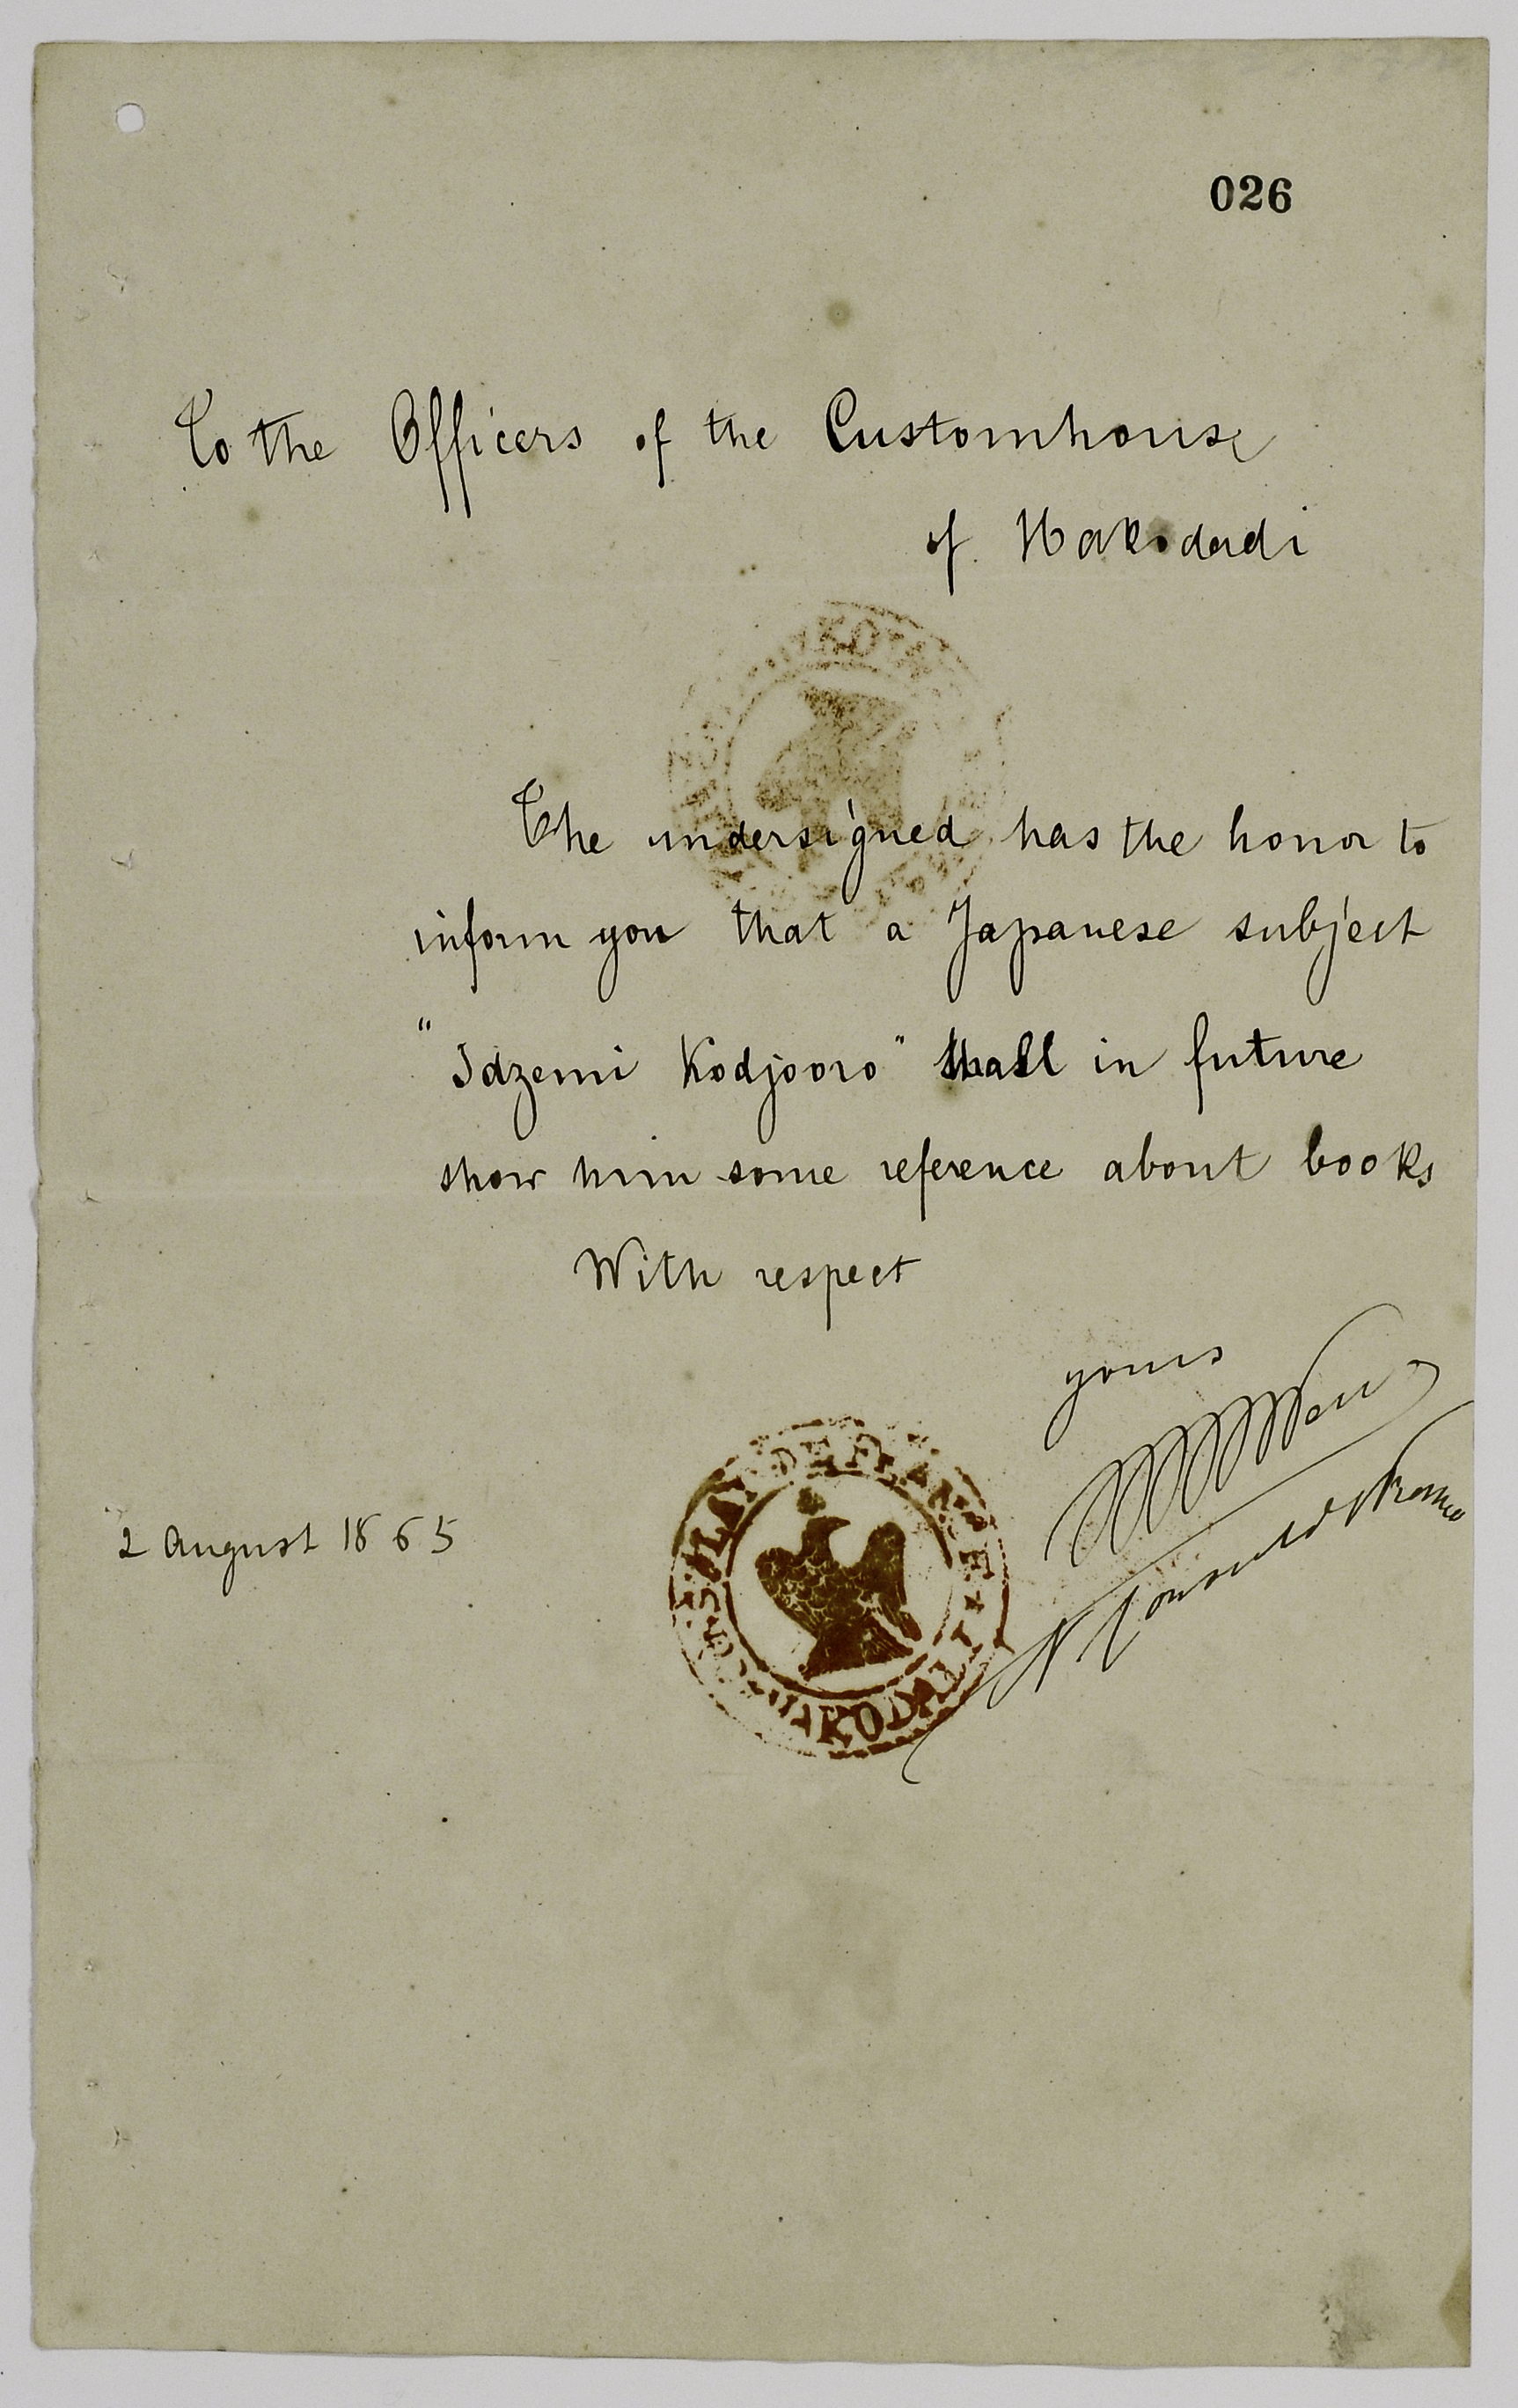 026
To the Officers of the Customhouse
of Hakodadi
The undersigned has the honor to
inform you that a Japanese subject
"Idzemi Kodjooro" shall in future
show him some reference about books
With respect
yours
2 August 1865
DE FRANCE